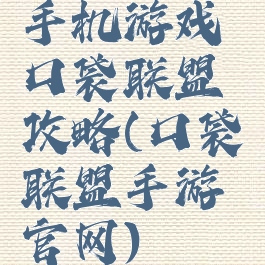 手机游戏
口袋联盟
攻略(口袋
联盟手游
官网)